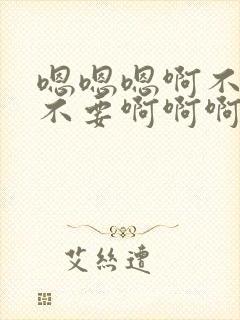 嗯嗯嗯啊不
不要啊啊啊
艾丝遭